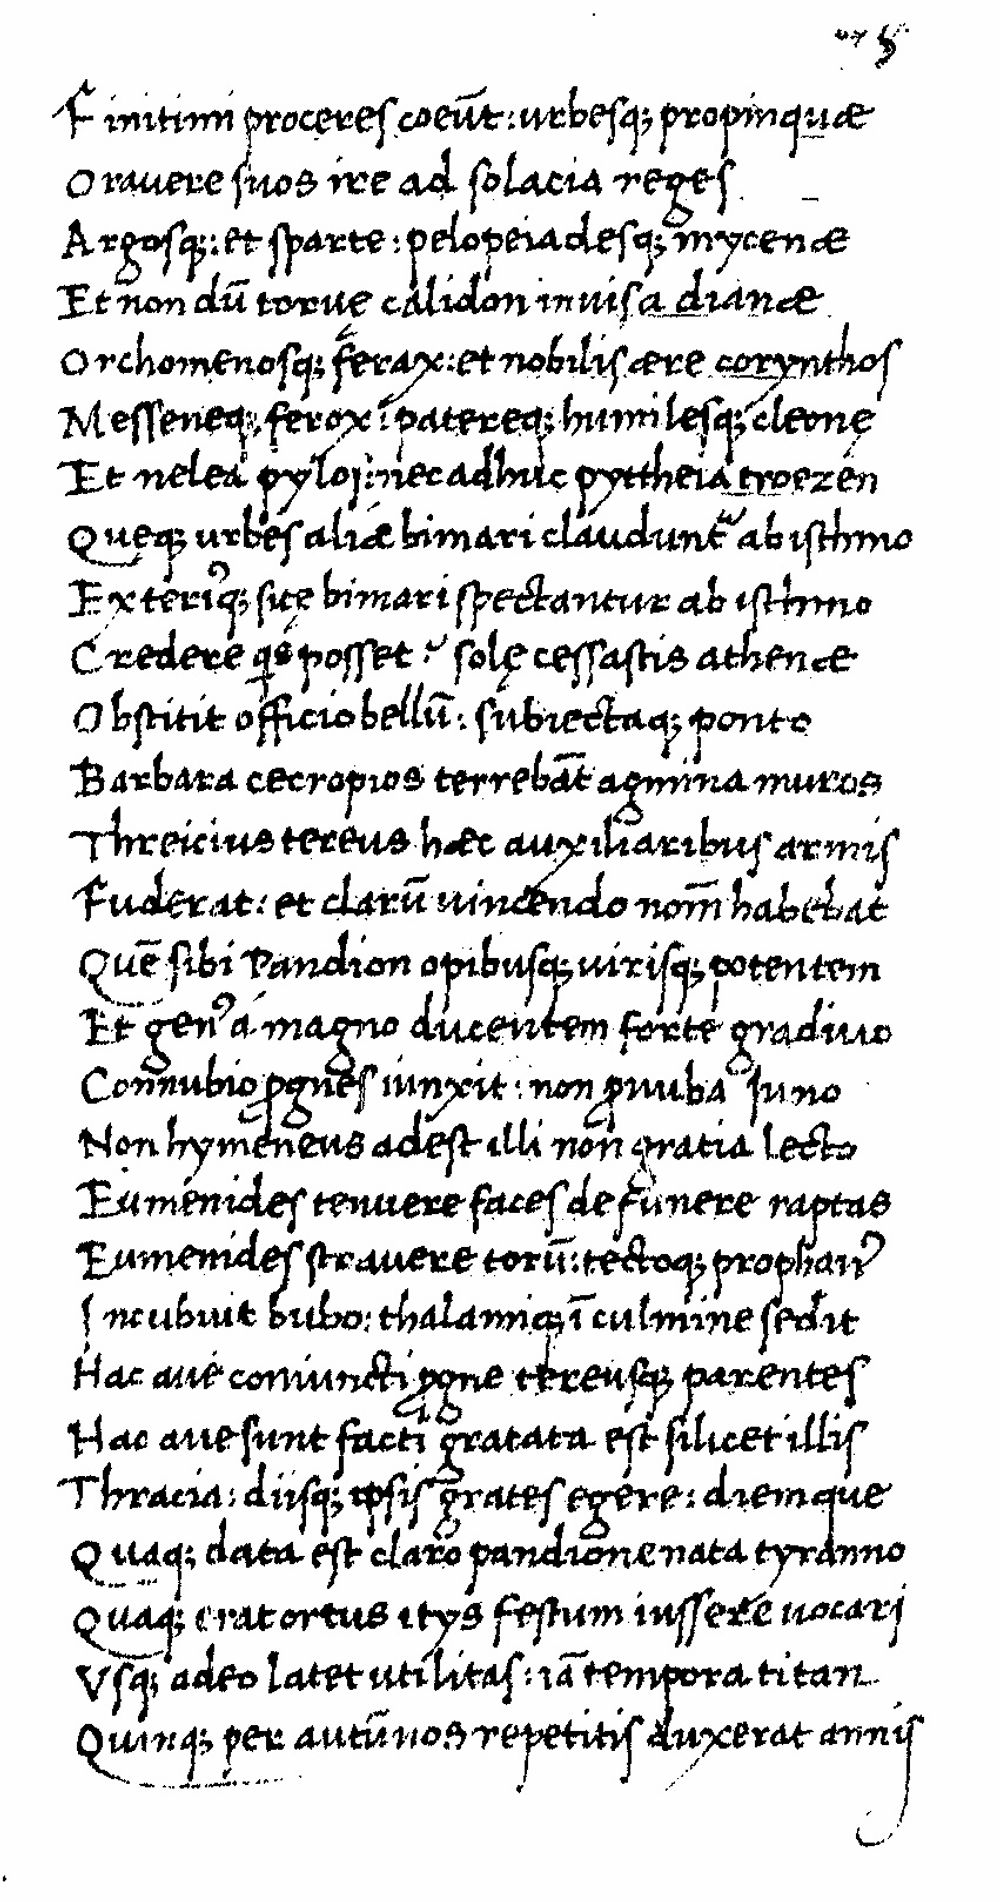 Finitimi proceres coeūt : urbesq; propinquæ
Orauere suos ire ad solacia reges
Argosq; : et sparte : pelopeiadesq; mycenæ
Et non dū toruę calidon inuisa dianæ
Orchomenosq; ferax : et nobilis ære corynthos
Messeneq; ferox : patereq; humilesq; cleonę
Et nelea pylos : nec adhuc pyttheia troezen
Quęq; urbes aliæ bimari claudunt᷑ ab isthmo
Exteriꝰq; sitę bimari spectantur ab isthmo
Credere qis posset ? solę cessastis athenæ
Obstitit officio bellū : subiectaq; ponto
Barbara cecropios terrebāt agmina muros
Threicius tereus hæc auxiliaribus armis
Fuderat : et clarū uincendo nom̄ habebat
Quē sibi Pandion opibusq; uirisq; potentem
Et genꝰ á magno ducentem forte gradiuo
Connubio ꝓgnes iunxit : non ꝓnuba Iuno
Non hymeneus adest illi non gratia lecto
Eumenides tenuere faces de funere raptas
Eumenides strauere torū : tectoq; prophanꝰ
Incubuit bubo : thalamiq; ī culmine sedit
Hac aue coniuncti ꝓgne tereusq; parentes
Hac aue sunt facti gratata est silicet illis
Thracia : diisq; ipsis grates egere : diemque
Quaq; data est claro pandione nata tyranno
Quaq; erat ortus itys festum iussere uocari
Vsq; adeo latet utilitas : iā tempora titan
Quinq; per autūnos repetitis duxerat annis